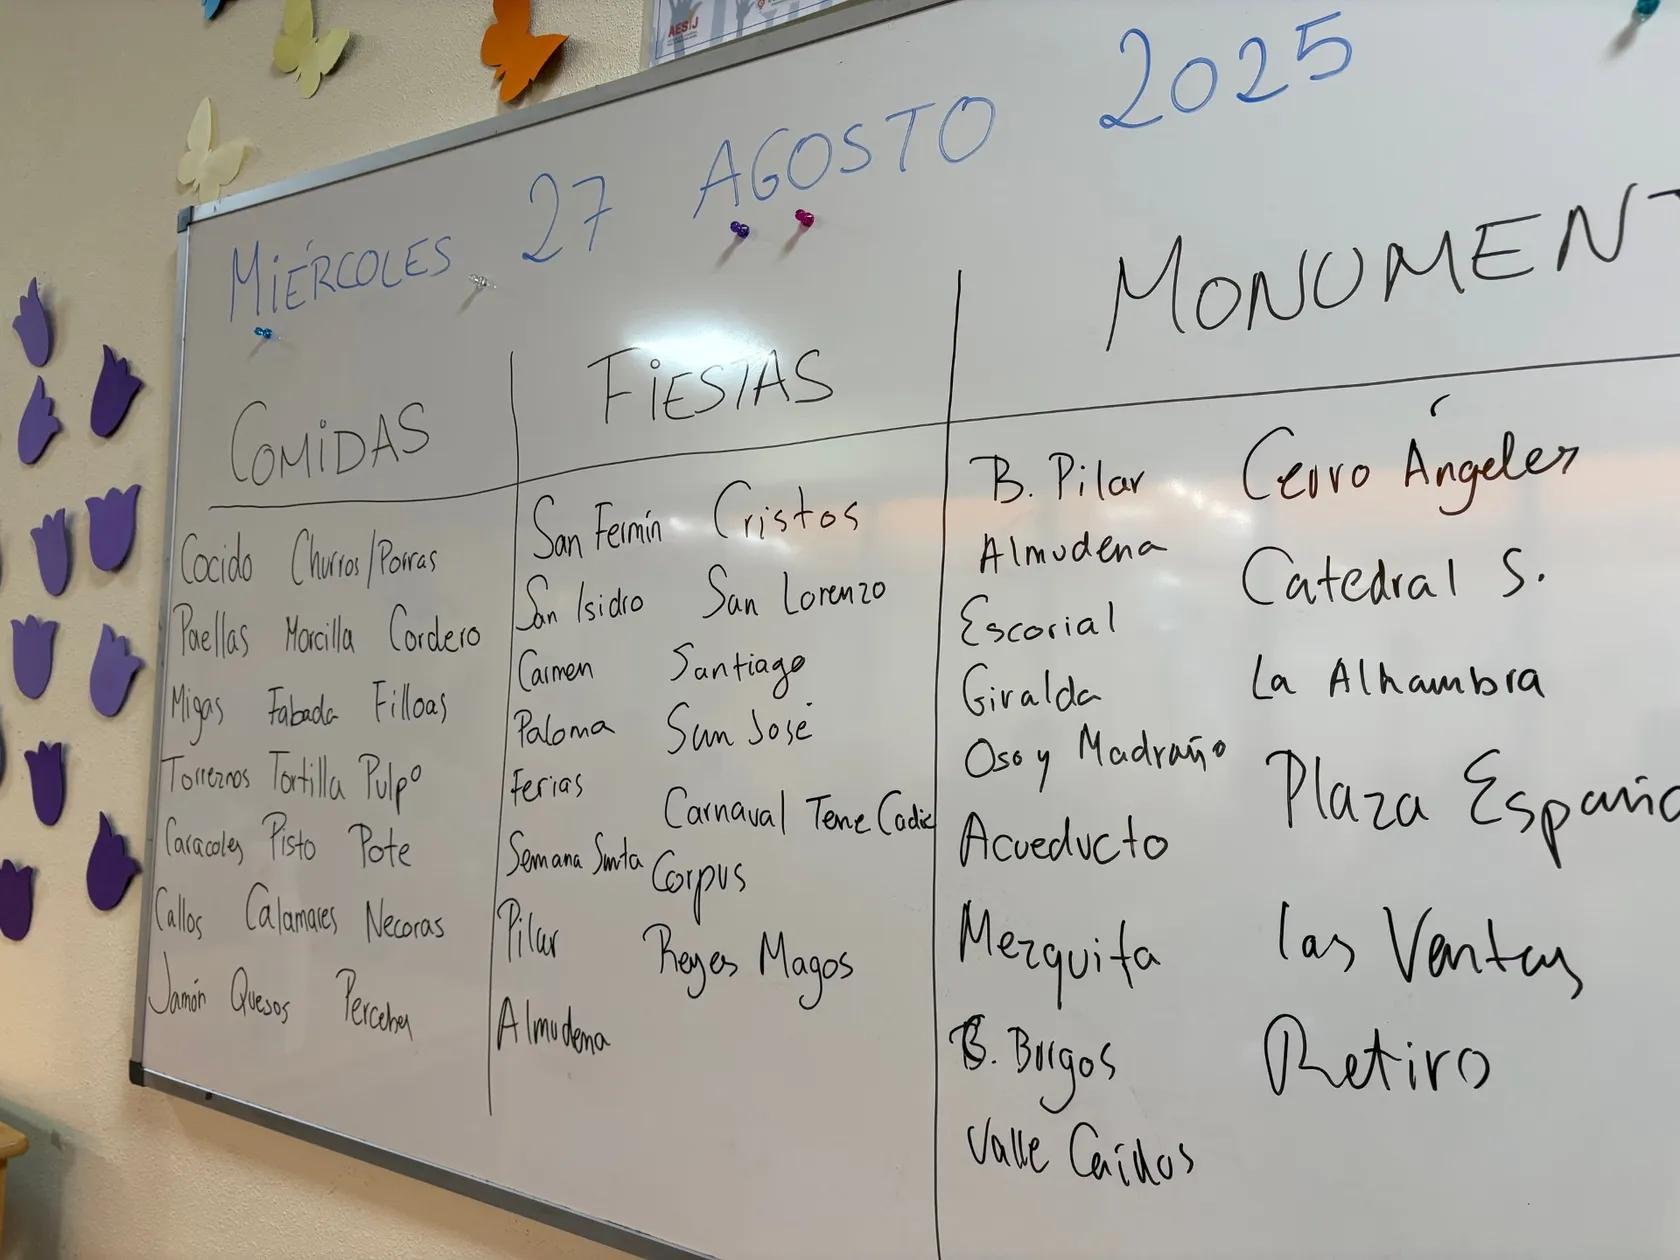 AESIJ
MIÉRCOLES 27 AGOSTO 2025
COMIDAS
Cocido Churros/Porras
Paellas Morcilla Cordero
Migas Fabada Filloas
Torreznos Tortilla Pulpo
Caracoles Pisto Pote
Callos Calamares Necoras
Jamón Quesos Percebes
FIESTAS
San Fermín Cristos
San Isidro San Lorenzo
Carmen Santiago
Paloma San José
Ferias
Carnaval Tene Cadiz
Semana Santa Corpus
Pilar Reyes Magos
Almudena
MONUMENT
B. Pilar Cerro Ángeles
Almudena Catedral S.
Escorial
Giralda La Alhambra
Oso y Madraño
Plaza España
Acueducto
Mezquita las Ventas
B. Burgos Retiro
Valle Caídos